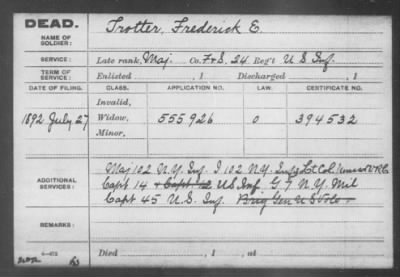 DEAD.
NAME OF SOLDIER:
Trotter, Frederick E.
SERVICE:
Late rank, Maj. Co. F&S, 24. Reg't U.S. Inf.
TERM OF SERVICE:
Enlisted , 1 Discharged , 1
DATE OF FILING. CLASS. APPLICATION NO. LAW. CERTIFICATE NO.
Invalid,
1892 July 27 Widow, 555926 0 394532
Minor,
ADDITIONAL SERVICES:
Maj 102 N.Y. Inf. I 102 N.Y. Inf & Lt Col. V.R.C.
Capt 14 & Capt 12 US Inf G 7 N.Y. Mil
Capt 45 U.S. Inf. Brig Gen U S Vols.
REMARKS:
Died , 1 , at